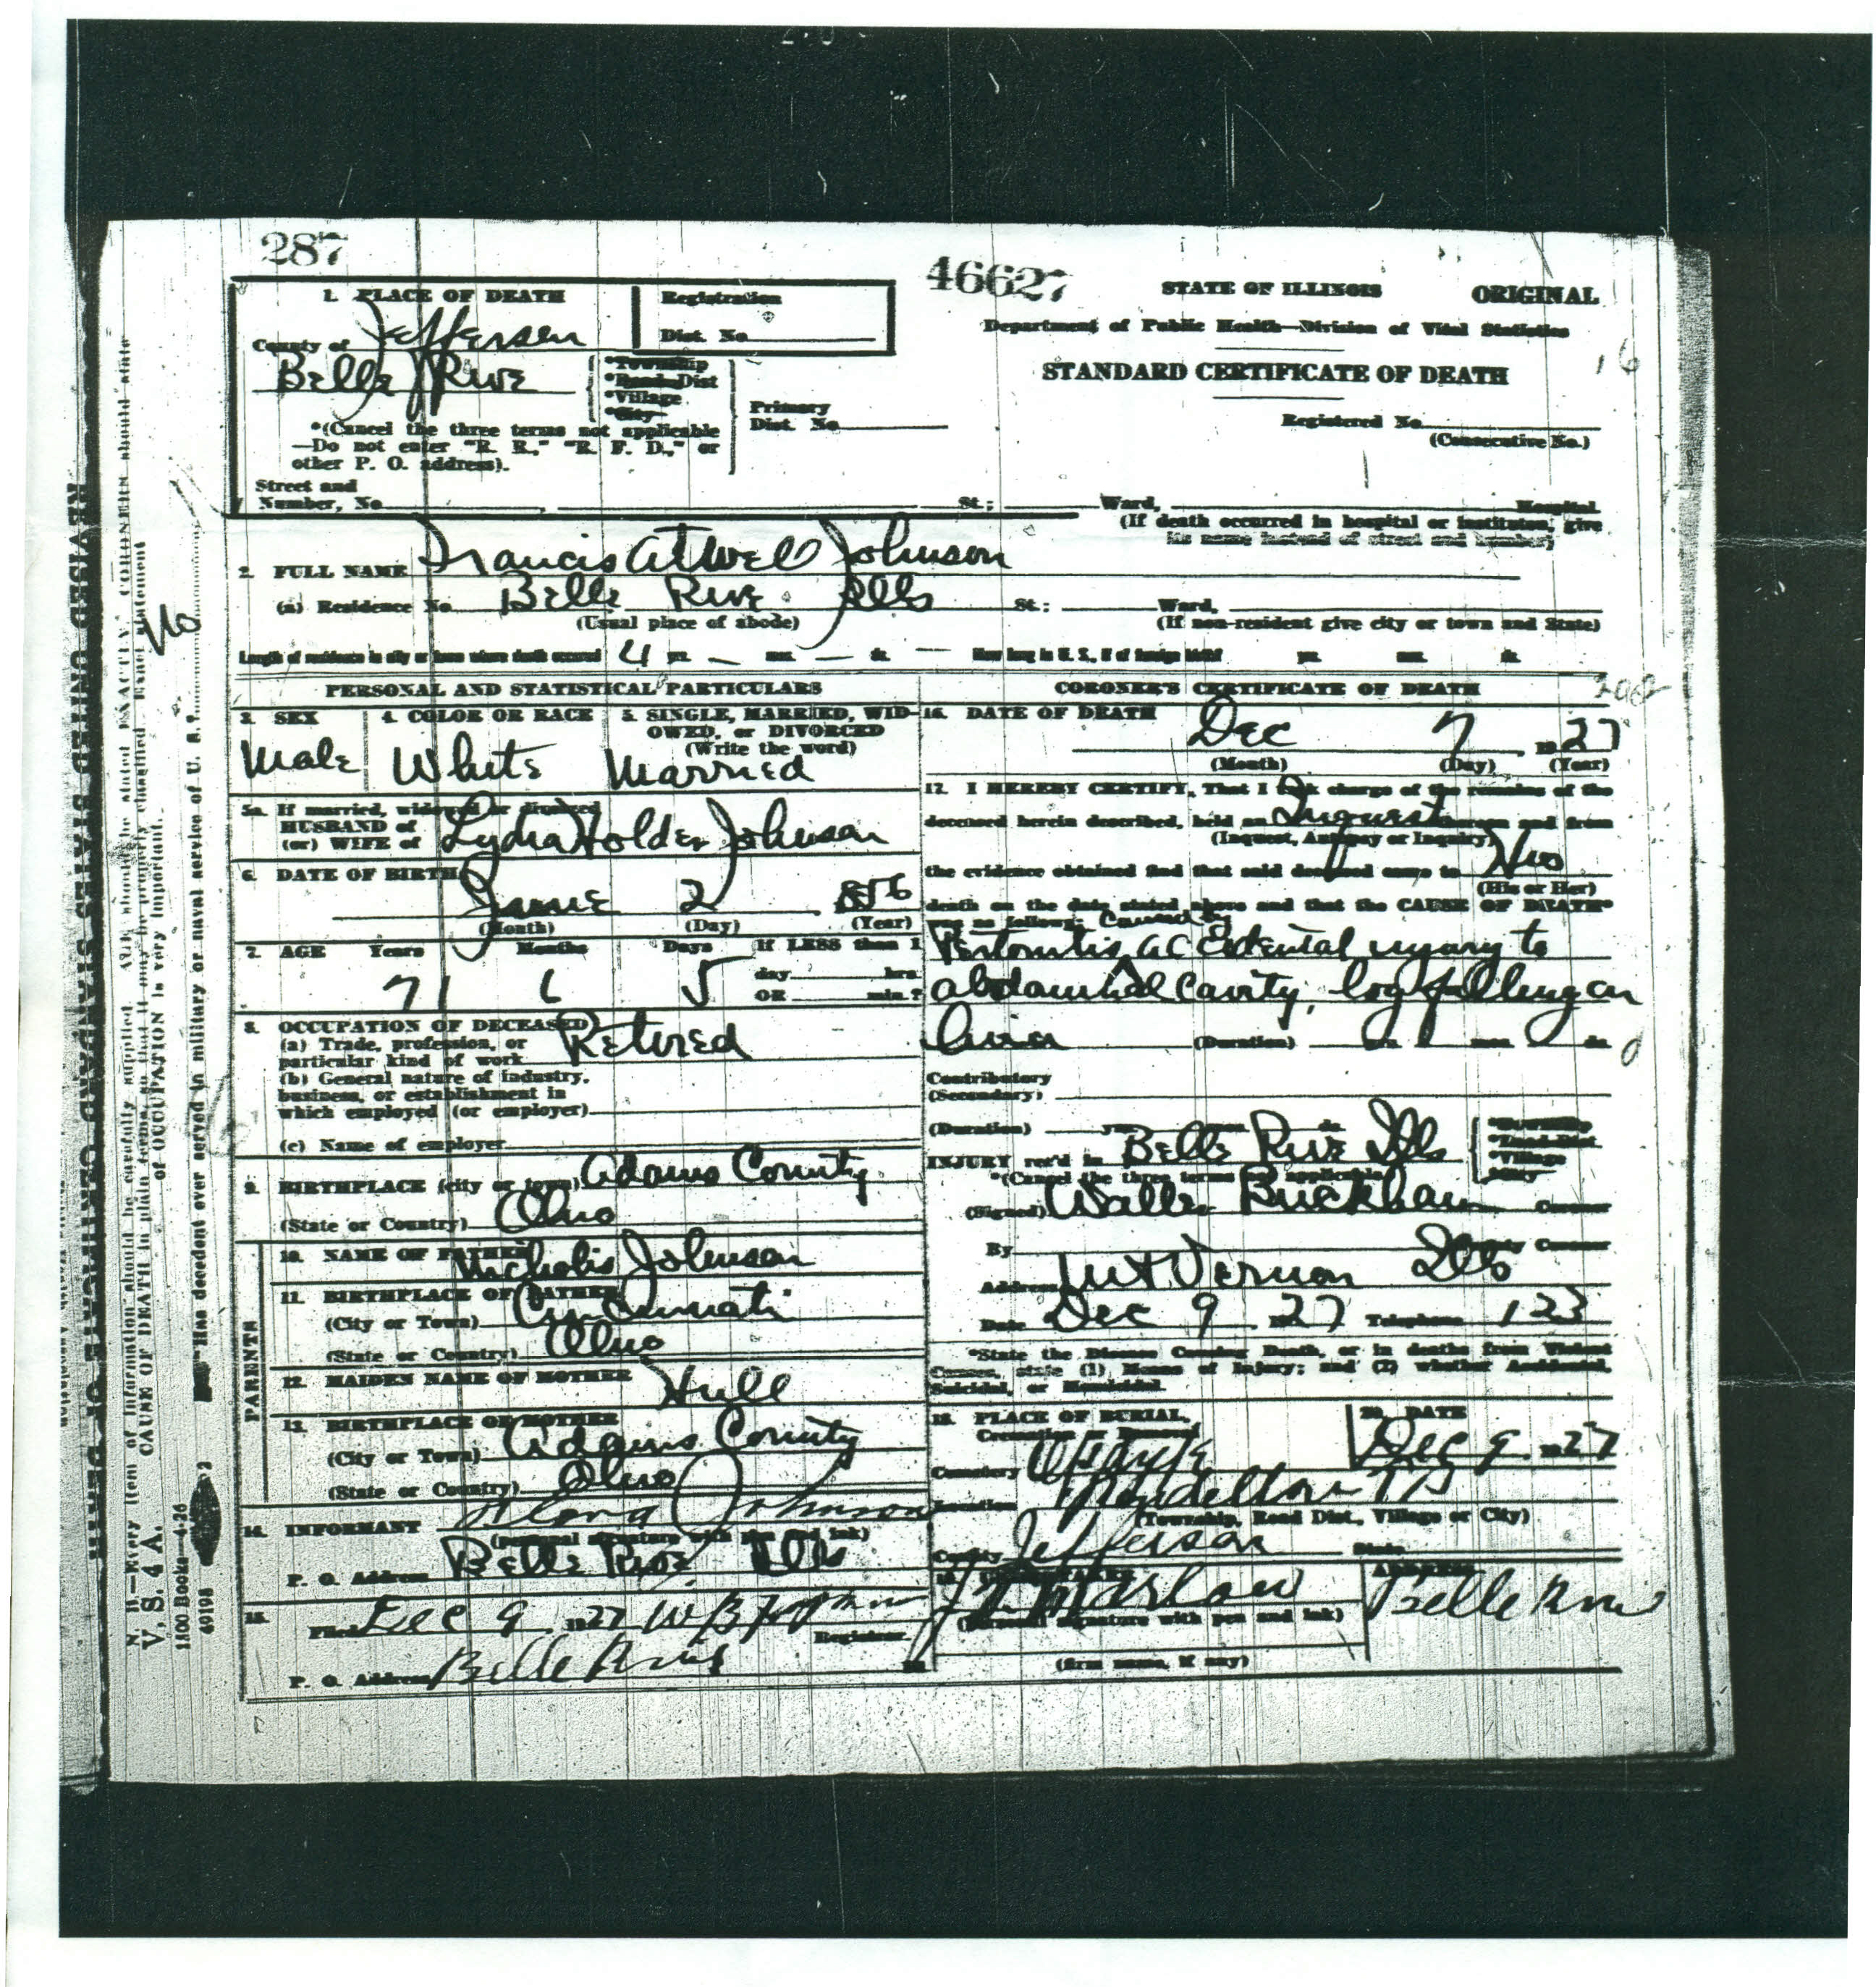 287
46627
STATE OF ILLINOIS
ORIGINAL
Department of Public Health—Division of Vital Statistics
STANDARD CERTIFICATE OF DEATH
Registered No.
(Consecutive No.)
1. PLACE OF DEATH
County of Jefferson
Registration
Dist. No.
Belle Rive
*Township
*Road Dist
*Village
*City
Primary
Dist. No.
*(Cancel the three terms not applicable
—Do not enter "R. R.," "R. F. D.," or
other P. O. address).
Street and
Number, No. St.; Ward, Hospital
(If death occurred in hospital or institution, give
its name instead of street and number)
2. FULL NAME Francis Atwell Johnson
(a) Residence No. Belle Rive Ills St.; Ward,
(Usual place of abode)
(If non-resident give city or town and State)
Length of residence in city or town where death occurred 4 yrs. — mos. — ds. — How long in U. S., if of foreign birth? yrs. mos. ds.
PERSONAL AND STATISTICAL PARTICULARS
3. SEX
Male
4. COLOR OR RACE
White
5. SINGLE, MARRIED, WID-
OWED, or DIVORCED
(Write the word)
Married
5a. If married, widowed or divorced
HUSBAND of
(or) WIFE of Lydia Holder Johnson
6. DATE OF BIRTH
June 2 1856
(Month) (Day) (Year)
7. AGE Years Months Days If LESS than 1
day hrs
OR min.?
71 6 5
8. OCCUPATION OF DECEASED
(a) Trade, profession, or
particular kind of work Retired
(b) General nature of industry,
business, or establishment in
which employed (or employer)
(c) Name of employer
9. BIRTHPLACE (city or town) Adams County
(State or Country) Ohio
PARENTS
10. NAME OF FATHER Nicholis Johnson
11. BIRTHPLACE OF FATHER
(City or Town) Cincinnati
(State or Country) Ohio
12. MAIDEN NAME OF MOTHER Hull
13. BIRTHPLACE OF MOTHER
(City or Town) Adams County
(State or Country) Ohio
14. INFORMANT Johnson
(personal signature with pen and ink)
P. O. Address Belle Rive Ills
15. Filed Dec 9 1927 W B
Registrar
P. O. Address Belle Rive
CORONER'S CERTIFICATE OF DEATH
16. DATE OF DEATH
Dec 7, 1927
(Month) (Day) (Year)
17. I HEREBY CERTIFY, That I took charge of the remains of the
deceased herein described, held an Inquest thereon and from
(Inquest, Autopsy or Inquiry)
the evidence obtained find that said deceased came to His
(His or Her)
death on the date stated above and that the CAUSE OF DEATH*
was as follows: Caused by
Peritonitis accidental injury to
abdominal cavity, log falling on
him (Duration) yrs. mos. ds.
Contributory
(Secondary)
(Duration) yrs. mos. ds.
INJURY rec'd in Belle Rive Ills
*Township
*Road Dist.
*Village
*City
*(Cancel the three terms not applicable)
(Signed) Coroner
By Deputy Coroner
Address Mt Vernon Ills
Date Dec 9, 1927 Telephone 123
*State the Disease Causing Death, or in deaths from Violent
Causes, state (1) Means of Injury; and (2) whether Accidental,
Suicidal, or Homicidal.
18. PLACE OF BURIAL,
Cremation or Removal
20. DATE
Cemetery
Dec 9 1927
Location Pendelton TP
(Township, Road Dist., Village or City)
County Jefferson State
19. UNDERTAKER
ADDRESS
Marlow
Belle Rive
(personal signature with pen and ink)
(firm name, if any)
N. B.—Every item of information should be carefully supplied. AGE should be stated EXACTLY. CORONERS should state
CAUSE OF DEATH in plain terms, so that it may be properly classified. Exact statement
of OCCUPATION is very important.
V. S. 4 A.
1100 Books—4-26
69198 2
"Has decedent ever served in military or naval service of U. S.?
No
REVISED UNITED STATES STANDARD CERTIFICATE OF DEATH